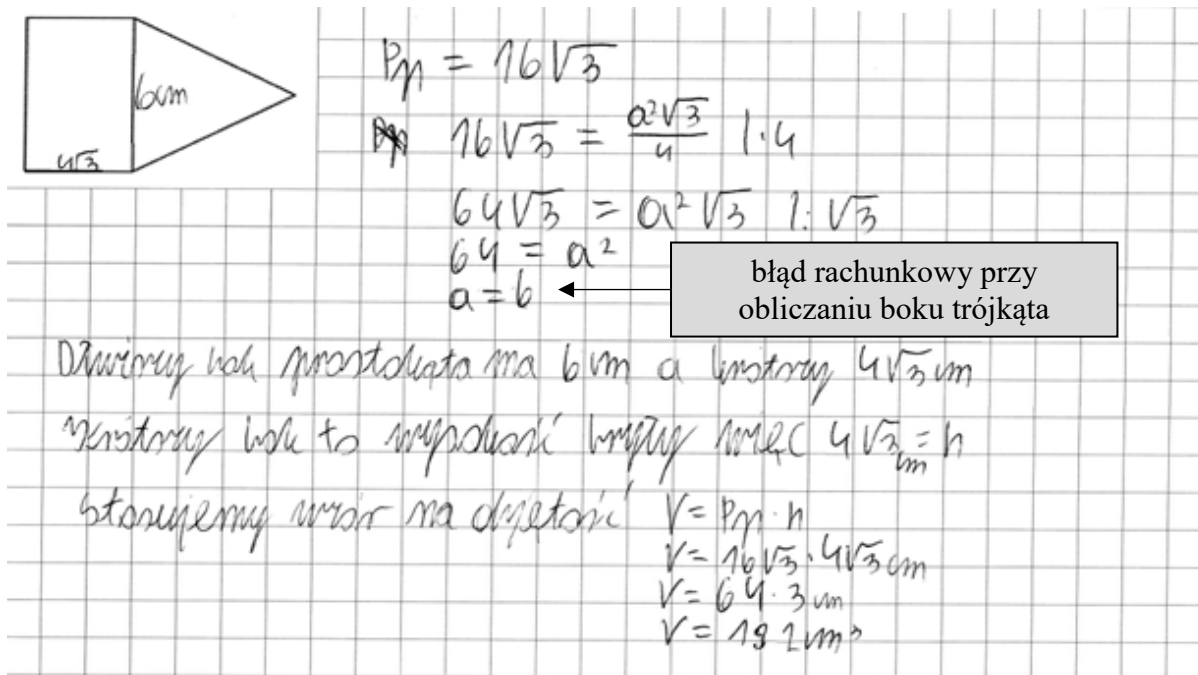 6cm
4√3
Pp = 16√3
16√3 = a²√3/4 |·4
64√3 = a²√3 |:√3
64 = a²
a = 6
błąd rachunkowy przy
obliczaniu boku trójkąta
Dłuższy bok prostokąta ma 6 cm a krótszy 4√3 cm
krótszy bok to wysokość bryły więc 4√3 cm = h
stosujemy wzór na objętość
V = Pp · h
V = 16√3 · 4√3 cm
V = 64 · 3 cm
V = 192 cm³